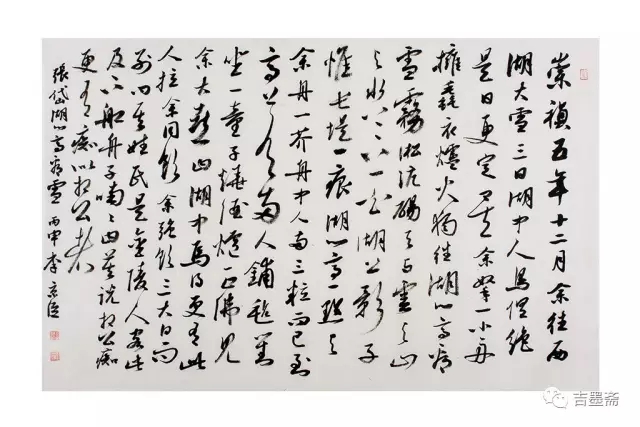 崇禎五年十二月余住西
湖大雪三日湖中人鳥俱絶
是日更定矣余拏一小舟
擁毳衣爐火獨往湖心亭看
雪霧淞沆碭天与雲与山
与水上下一白湖上影子
惟長堤一痕湖心亭一點与
余舟一芥舟中人兩三粒而已到
亭上有兩人鋪氈對
坐一童子燒酒爐正沸見
余大喜曰湖中焉得更有此
人拉余同飲余強飲三大白而
别问其姓氏是金陵人客此
及下船舟子喃〻曰莫説相公痴
更有痴似相公者
張岱湖心亭看雪 丙申 李
吉墨斋